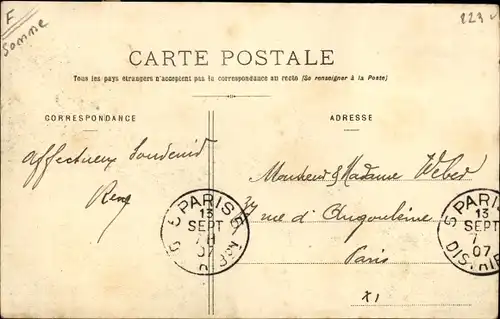 F
Somme
223
CARTE POSTALE
Tous les pays étrangers n'acceptent pas la correspondance au recto (Se renseigner à la Poste)
CORRESPONDANCE
ADRESSE
Affectueux Souvenir
René
Monsieur & Madame Weber
37 rue d'Angoulême
Paris
XI
PARIS
13
SEPT
07
5 PARIS
13
SEPT
7
07
DISTRIB